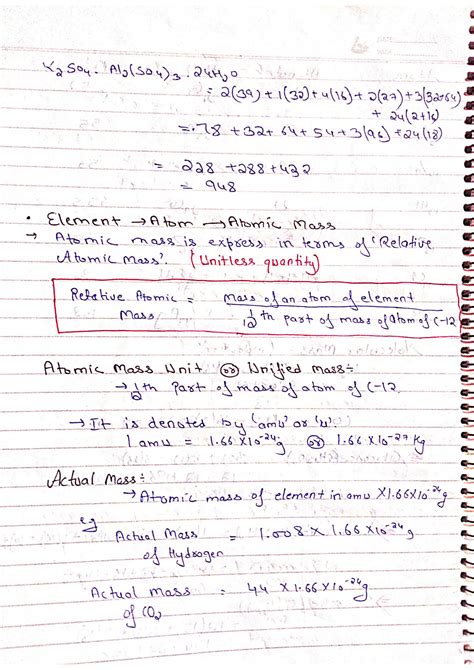 K₂SO₄. Al₂(SO₄)₃ . 24H₂O
= 2(39) + 1(32) + 4(16) + 2(27) + 3(32+64)
+ 24(2+16)
= 78 + 32 + 64 + 54 + 3(96) + 24(18)
= 228 + 288 + 432
= 948
• Element → Atom → Atomic Mass
→ Atomic mass is express in terms of 'Relative
Atomic Mass'. (Unitless quantity)
Relative Atomic Mass = mass of an atom of element / 1/12 th part of mass of atom of C-12
Atomic Mass Unit or Unified Mass:-
→ 1/12 th Part of mass of atom of C-12.
→ It is denoted by 'amu' or 'u'.
1 amu = 1.66 X10⁻²⁴g or 1.66 X10⁻²⁷ Kg
Actual Mass:-
→ Atomic mass of element in amu X1.66X10⁻²⁴g
eg Actual Mass of Hydrogen = 1.008 X 1.66 X10⁻²⁴g
Actual Mass of CO₂ = 44 X1.66 X10⁻²⁴g